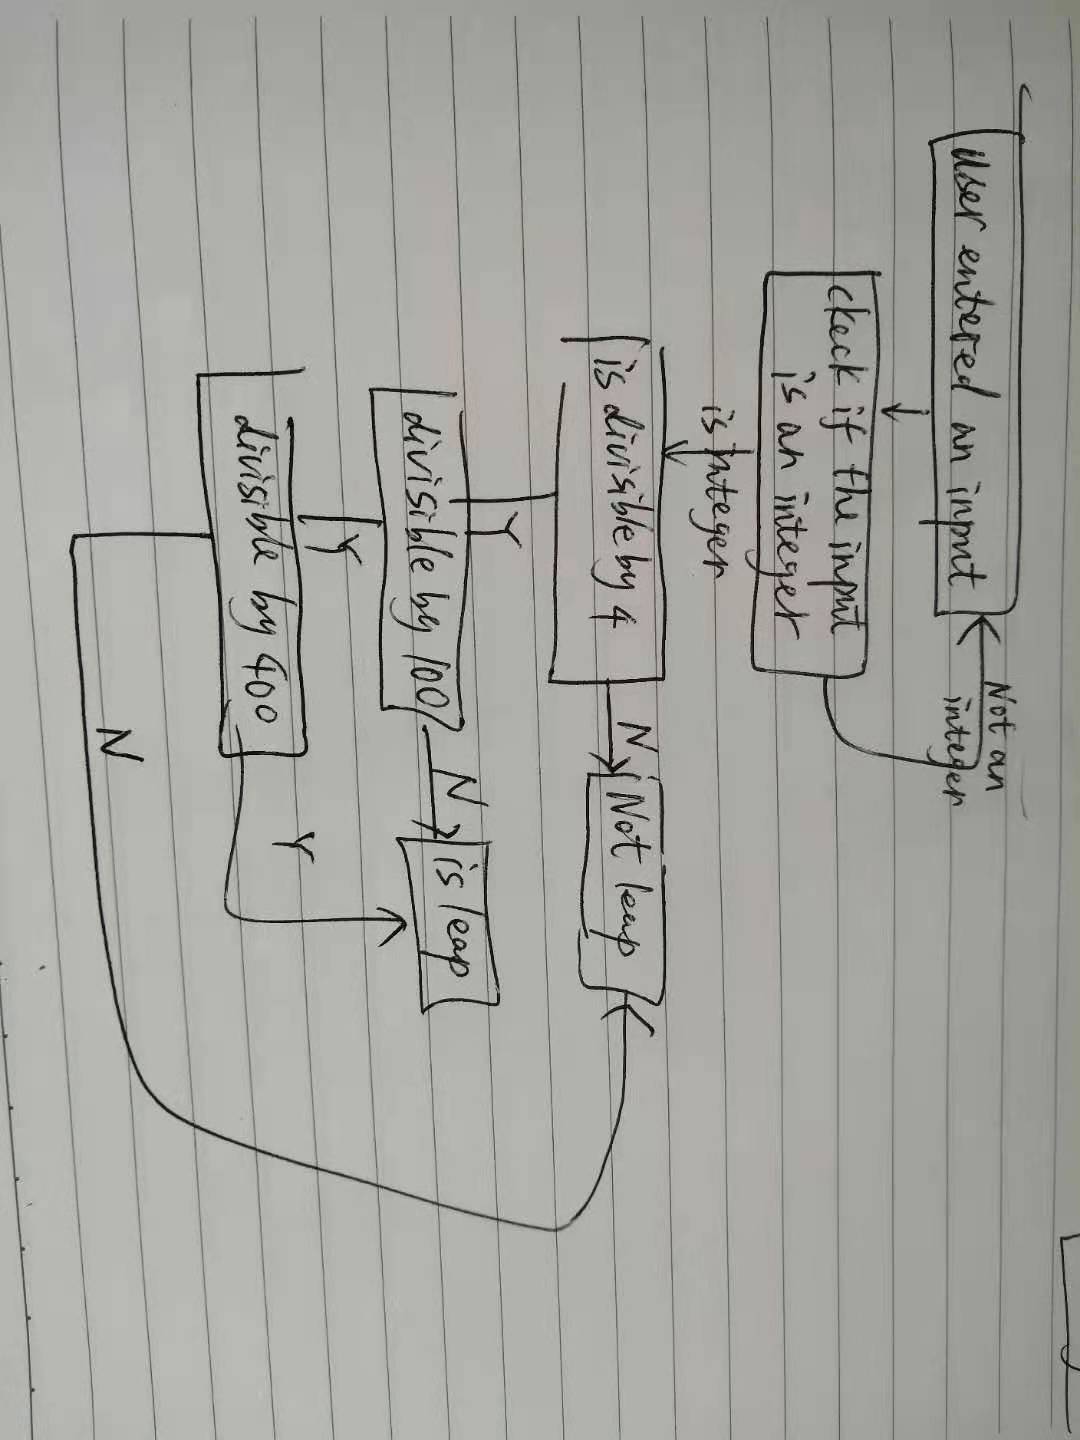 User entered an input
Not an
integer
ckeck if the input
is an integer
is integer
is divisible by 4
N
Not leap
Y
divisible by 100
N
is leap
Y
divisible by 400
Y
N